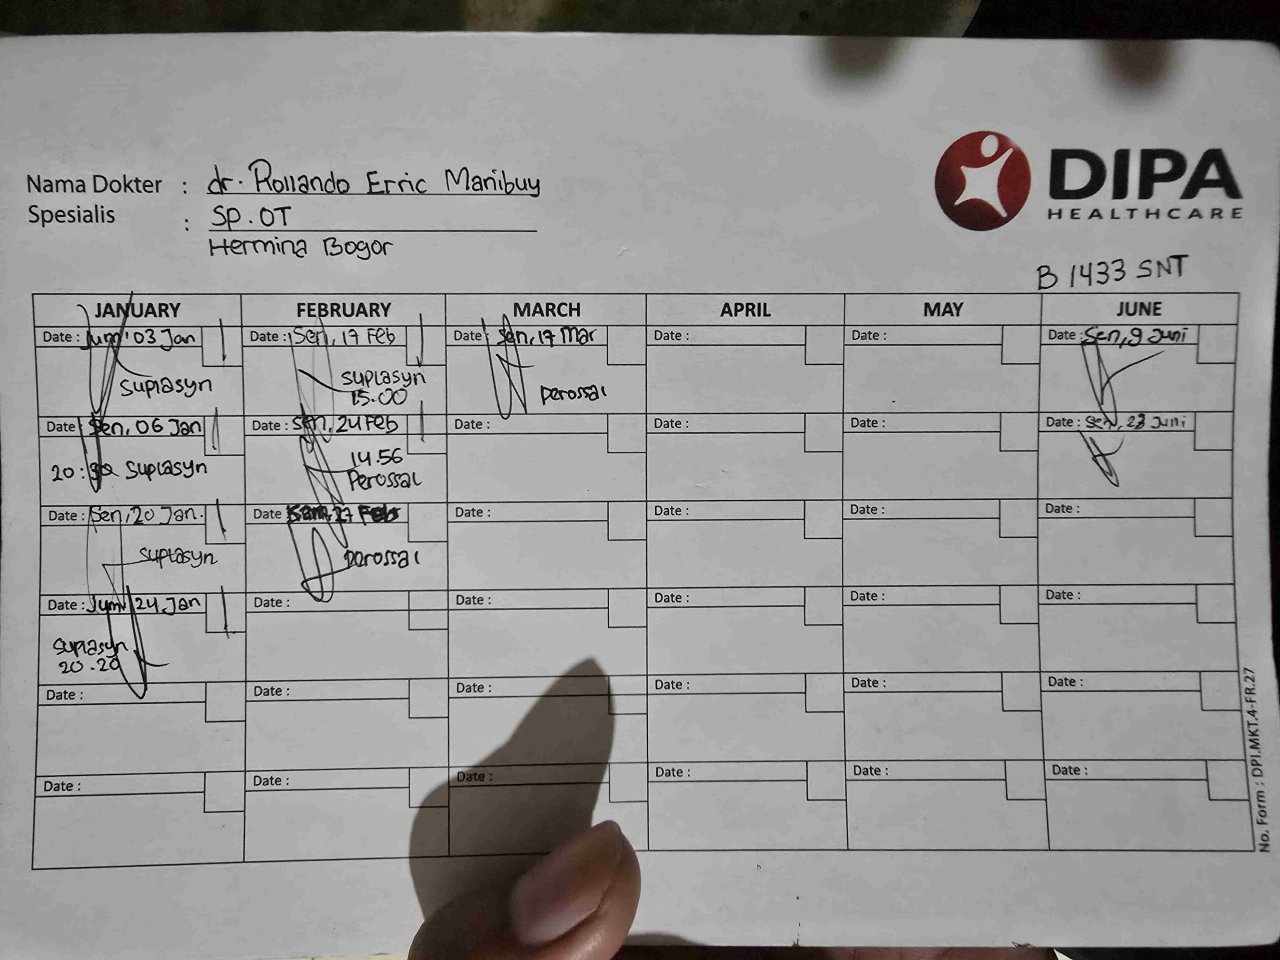 DIPA
HEALTHCARE
Nama Dokter : dr. Rollando Erric Manibuy
Spesialis : SP.OT
Hermina Bogor
B 1433 SNT
JANUARY FEBRUARY MARCH APRIL MAY JUNE
Date : Jum' 03 Jan Date : Sen, 17 Feb Date : Sen, 17 Mar Date : Date : Date : Sen, 9 Juni
Suplasyn
Suplasyn
15.00
Perossal
Date : Sen, 06 Jan Date : Sen, 24 Feb Date : Date : Date : Date : Sen, 23 Juni
20: Suplasyn
14.56
Perossal
Date : Sen, 20 Jan. Date 27 Feb Date : Date : Date : Date :
Suplasyn
Perossal
Date : Jum' 24 Jan Date : Date : Date : Date : Date :
Suplasyn
20.20
Date : Date : Date : Date : Date : Date :
Date : Date : Date : Date : Date : Date :
No. Form : DPI.MKT.4-FR.27